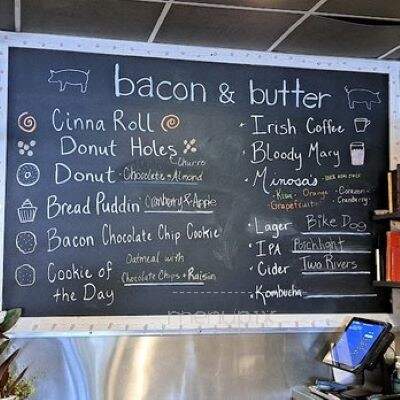 bacon & butter
Cinna Roll
Donut Holes
Churro
Donut - Chocolate + Almond
Bread Puddin Cranberry & Apple
Bacon Chocolate Chip Cookie
Cookie of the Day
Oatmeal with
Chocolate Chips + Raisin
Irish Coffee
Bloody Mary
Mimosa's
- Kiwi - Orange
- Grapefruit
- Cranberry
Lager Bike Dog
IPA Porchlight
Cider Two Rivers
Kombucha
menupix